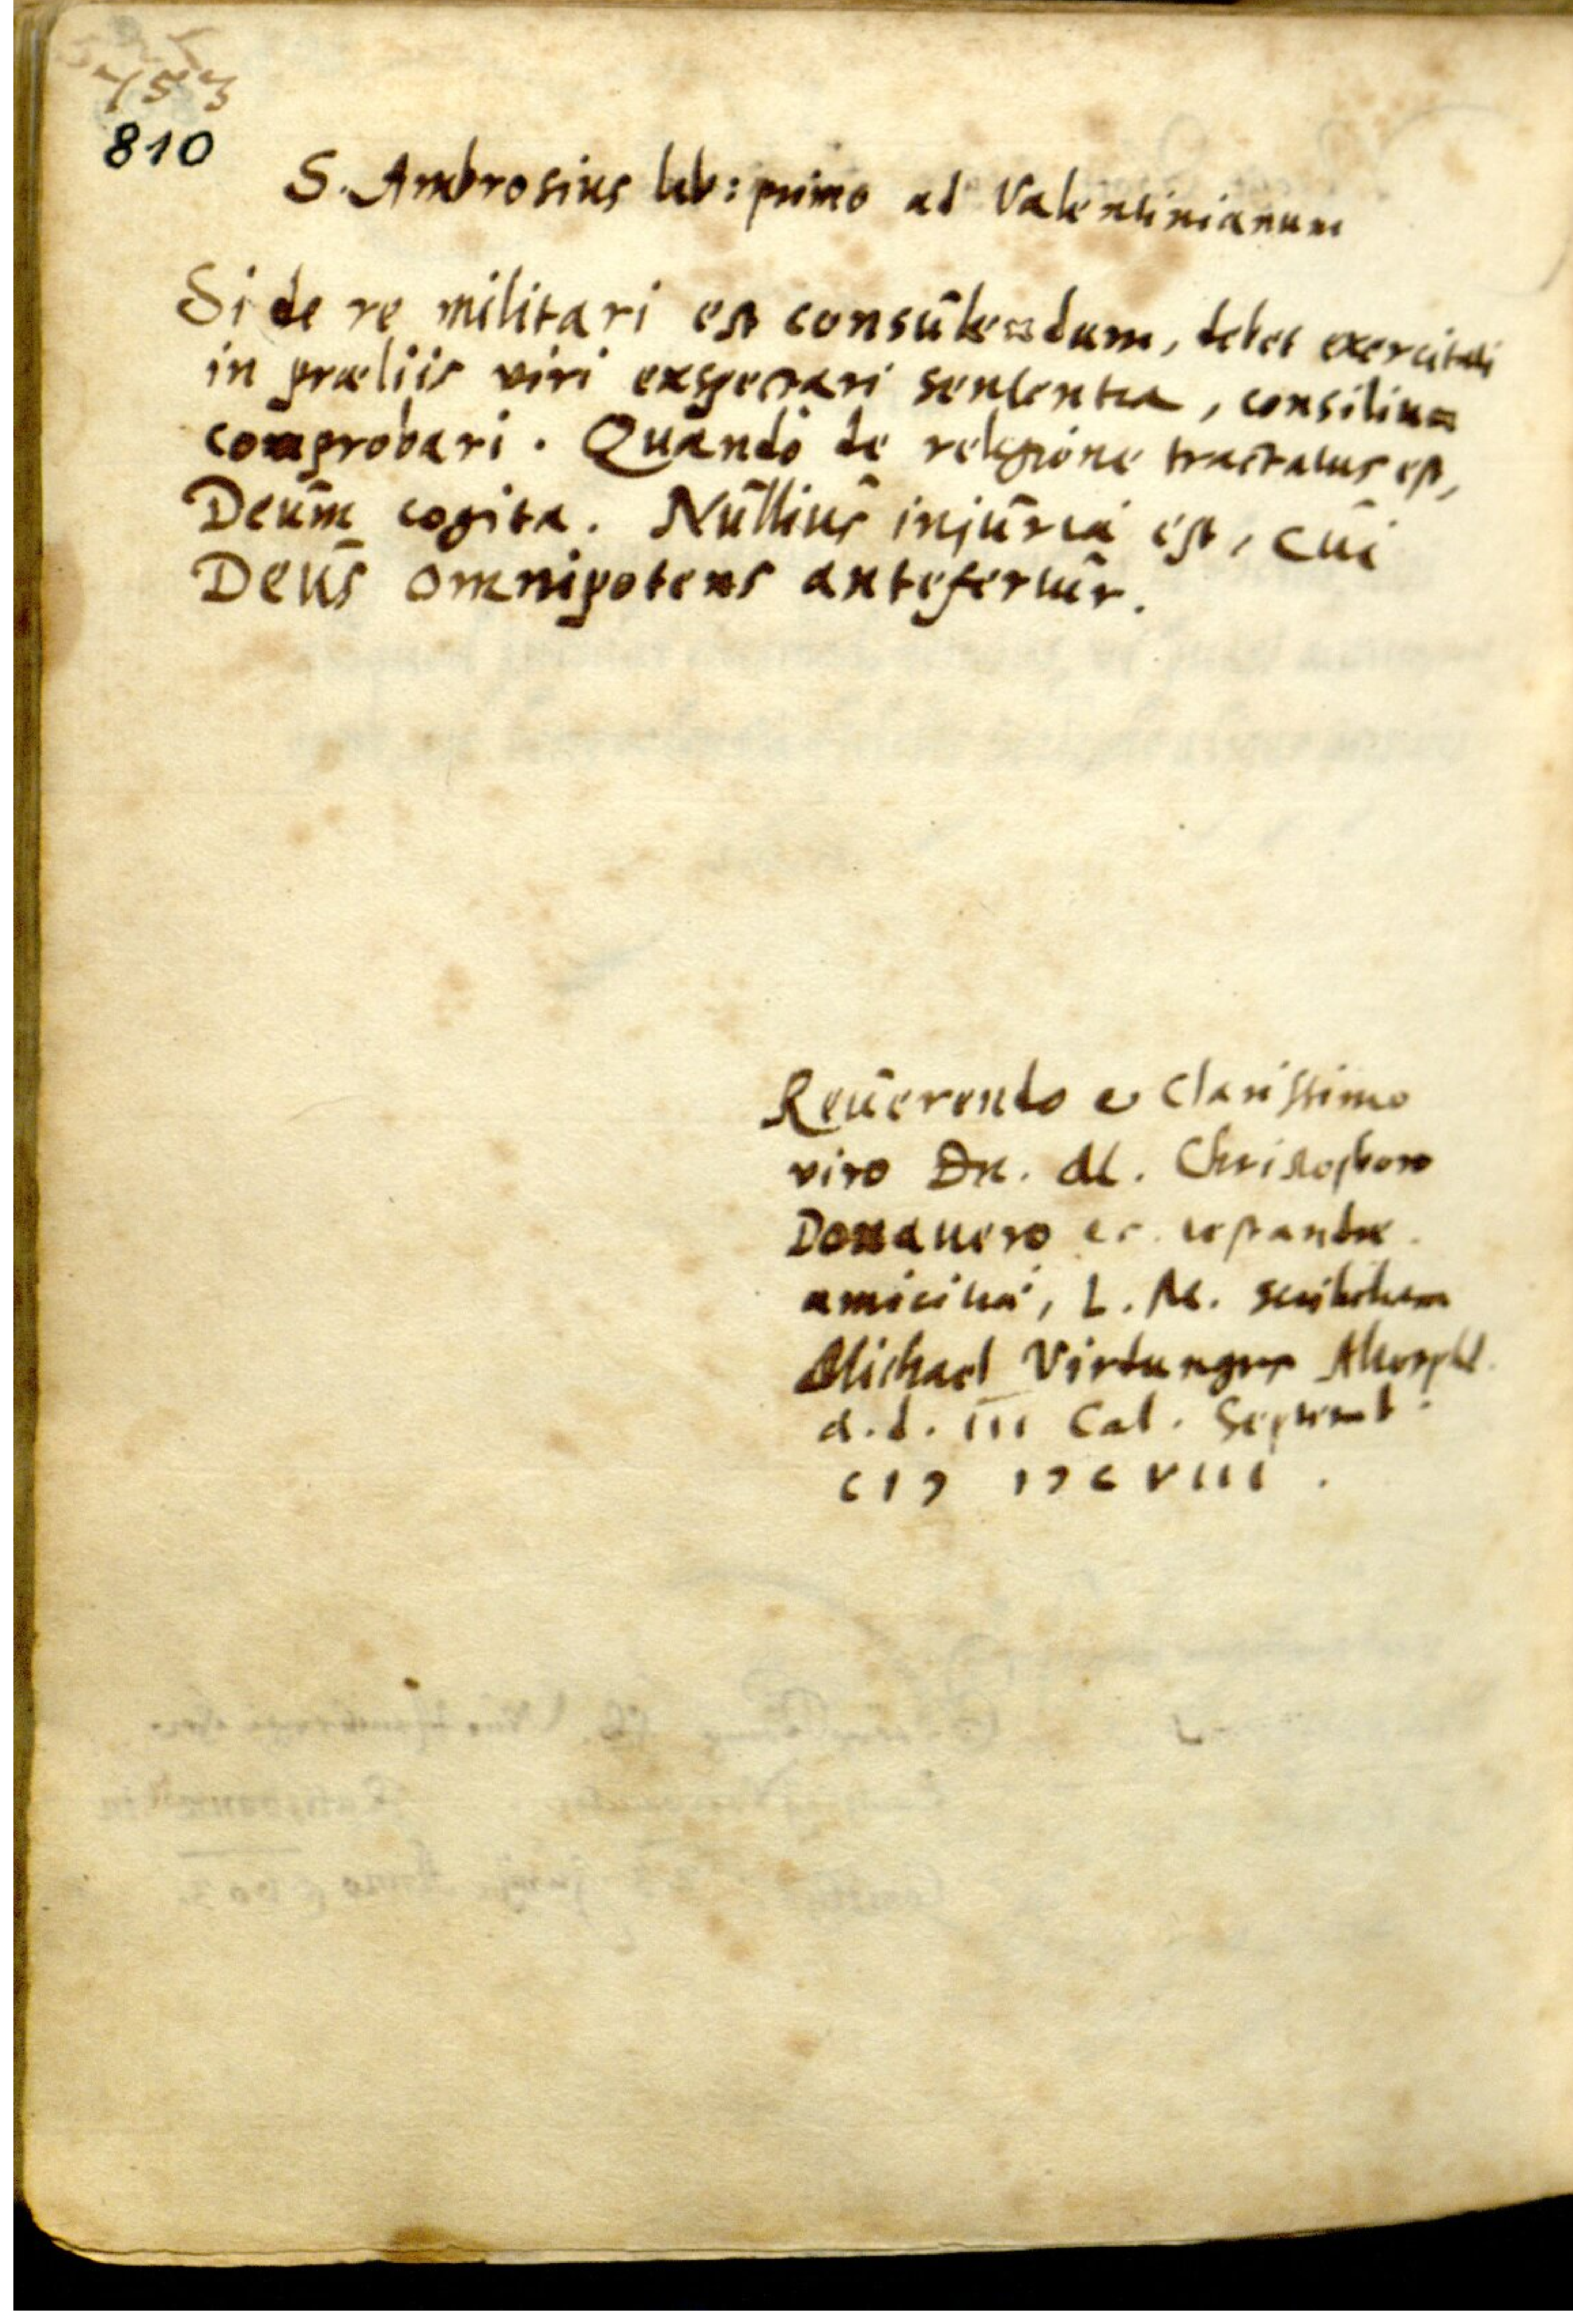 753
810
S. Ambrosius lib: primo ad Valentinianum
Si de re militari est consulendum, debet exercitati
in præliis viri exspectari sententia, consilium
comprobari. Quando de religione tractatus est,
Deum cogita. Nullius injuria est, cui
Deus omnipotens antefertur.
Reuerendo et Clarissimo
viro Dn. M. Christophoro
Donauero
amicitiæ, L. M. scribebam
Michael Virdungus
a. d. III Cal. Septemb.
CIↃ IↃCVIII.